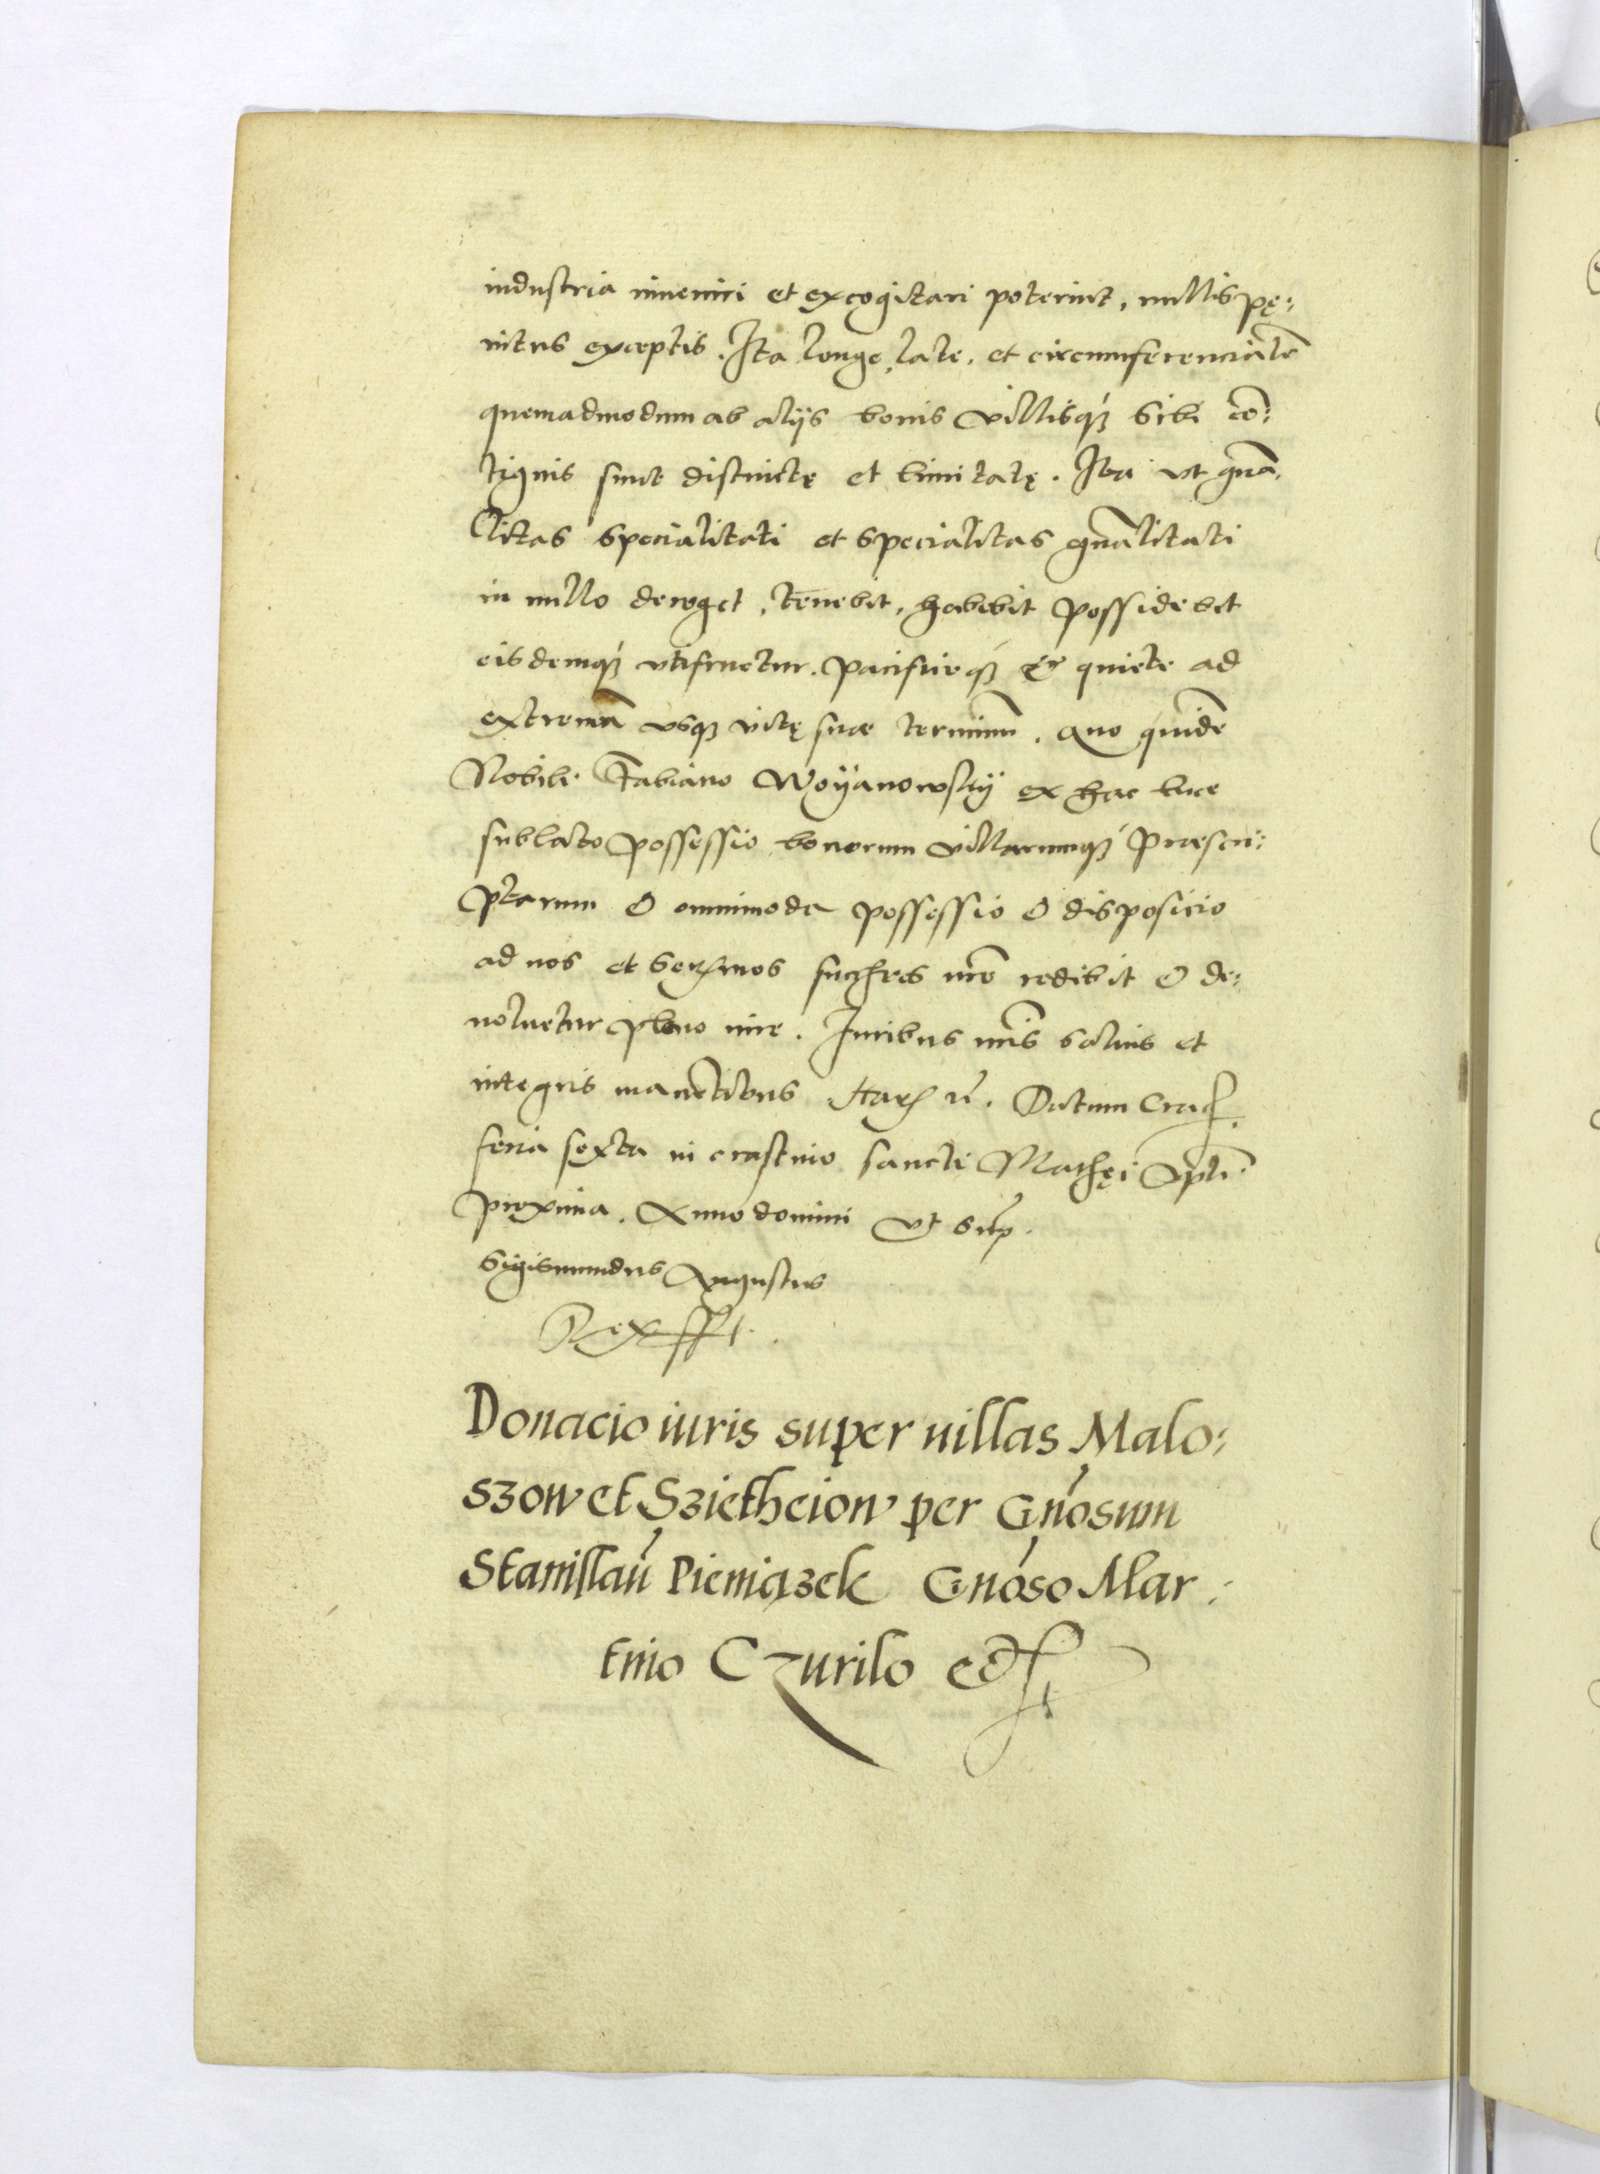 industria inueniri et excogitari poterint, nullis pę:
nitus exceptis. Ita longe, late, et circumferencialr̃
quemadmodum ab alijs bonis villisq́ȝ sibi cõ:
tiguis sunt distinctę et limitatę. Ita vt gnã,
litas specialitati et specialitas gnãlitati
in nullo deroget, tenebit, habebit possidebit
eisdemq́ȝ vtifruetur. pacificeq́ȝ & quiete ad
extremũ vsqȝ vitę suae terminũ. quo quidẽ
Nobili Fabiano Woÿanowskÿ ex hac luce
sublato possessio bonorum villarumq́ȝ praescri:
ptarum & omnimoda possessio & disposicio
ad nos et serẽmos succẽres nr̃os redibit & de:
uoluetur pleno iure. Iuribus nr̃is saluis et
integris manẽtibus. Harũ rẽ. Datum Crac̃
feria sexta in crastino sancti Mathęi Apl̃i
proxima. Anno domini vt sup̃.
Sigismundus Augustus
Rex sst.
Donacio iuris super uillas Malo:
szow et Szietheiow per Gño̓sum
Stanislaũ Pieniązek Gño̓so Mar:
tino Czurilo etc̃